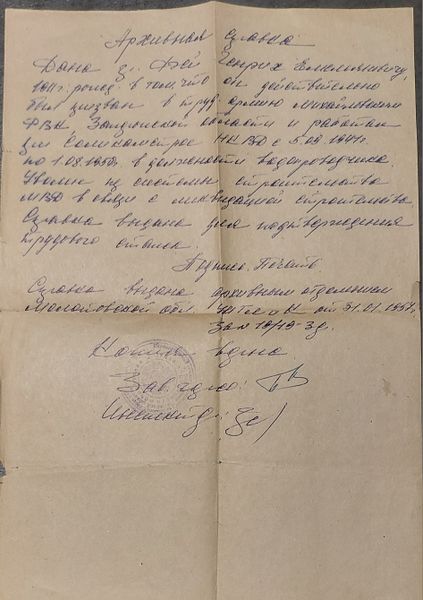 Архивная справка
Дана з/к Фей Генрих Емельяновичу,
1911 г. рожд. в том, что он действительно
был призван в труд. армию Михайловским
РВК Запорожской области и работал
на Соликамстрое НКВД с 5.09.1941г
по 1.08.1950г в должности водопроводчика.
Уволен из системы строительства
МВД в связи с ликвидацией строительства.
Справка выдана для подтверждения
трудового стажа.
Подпись. Печать.
Справка выдана архивным отделением
Молотовской обл. от 31.01.1957
Зам 10/19-3д.
Копия верна
Зав. гаро:
Инспектор: